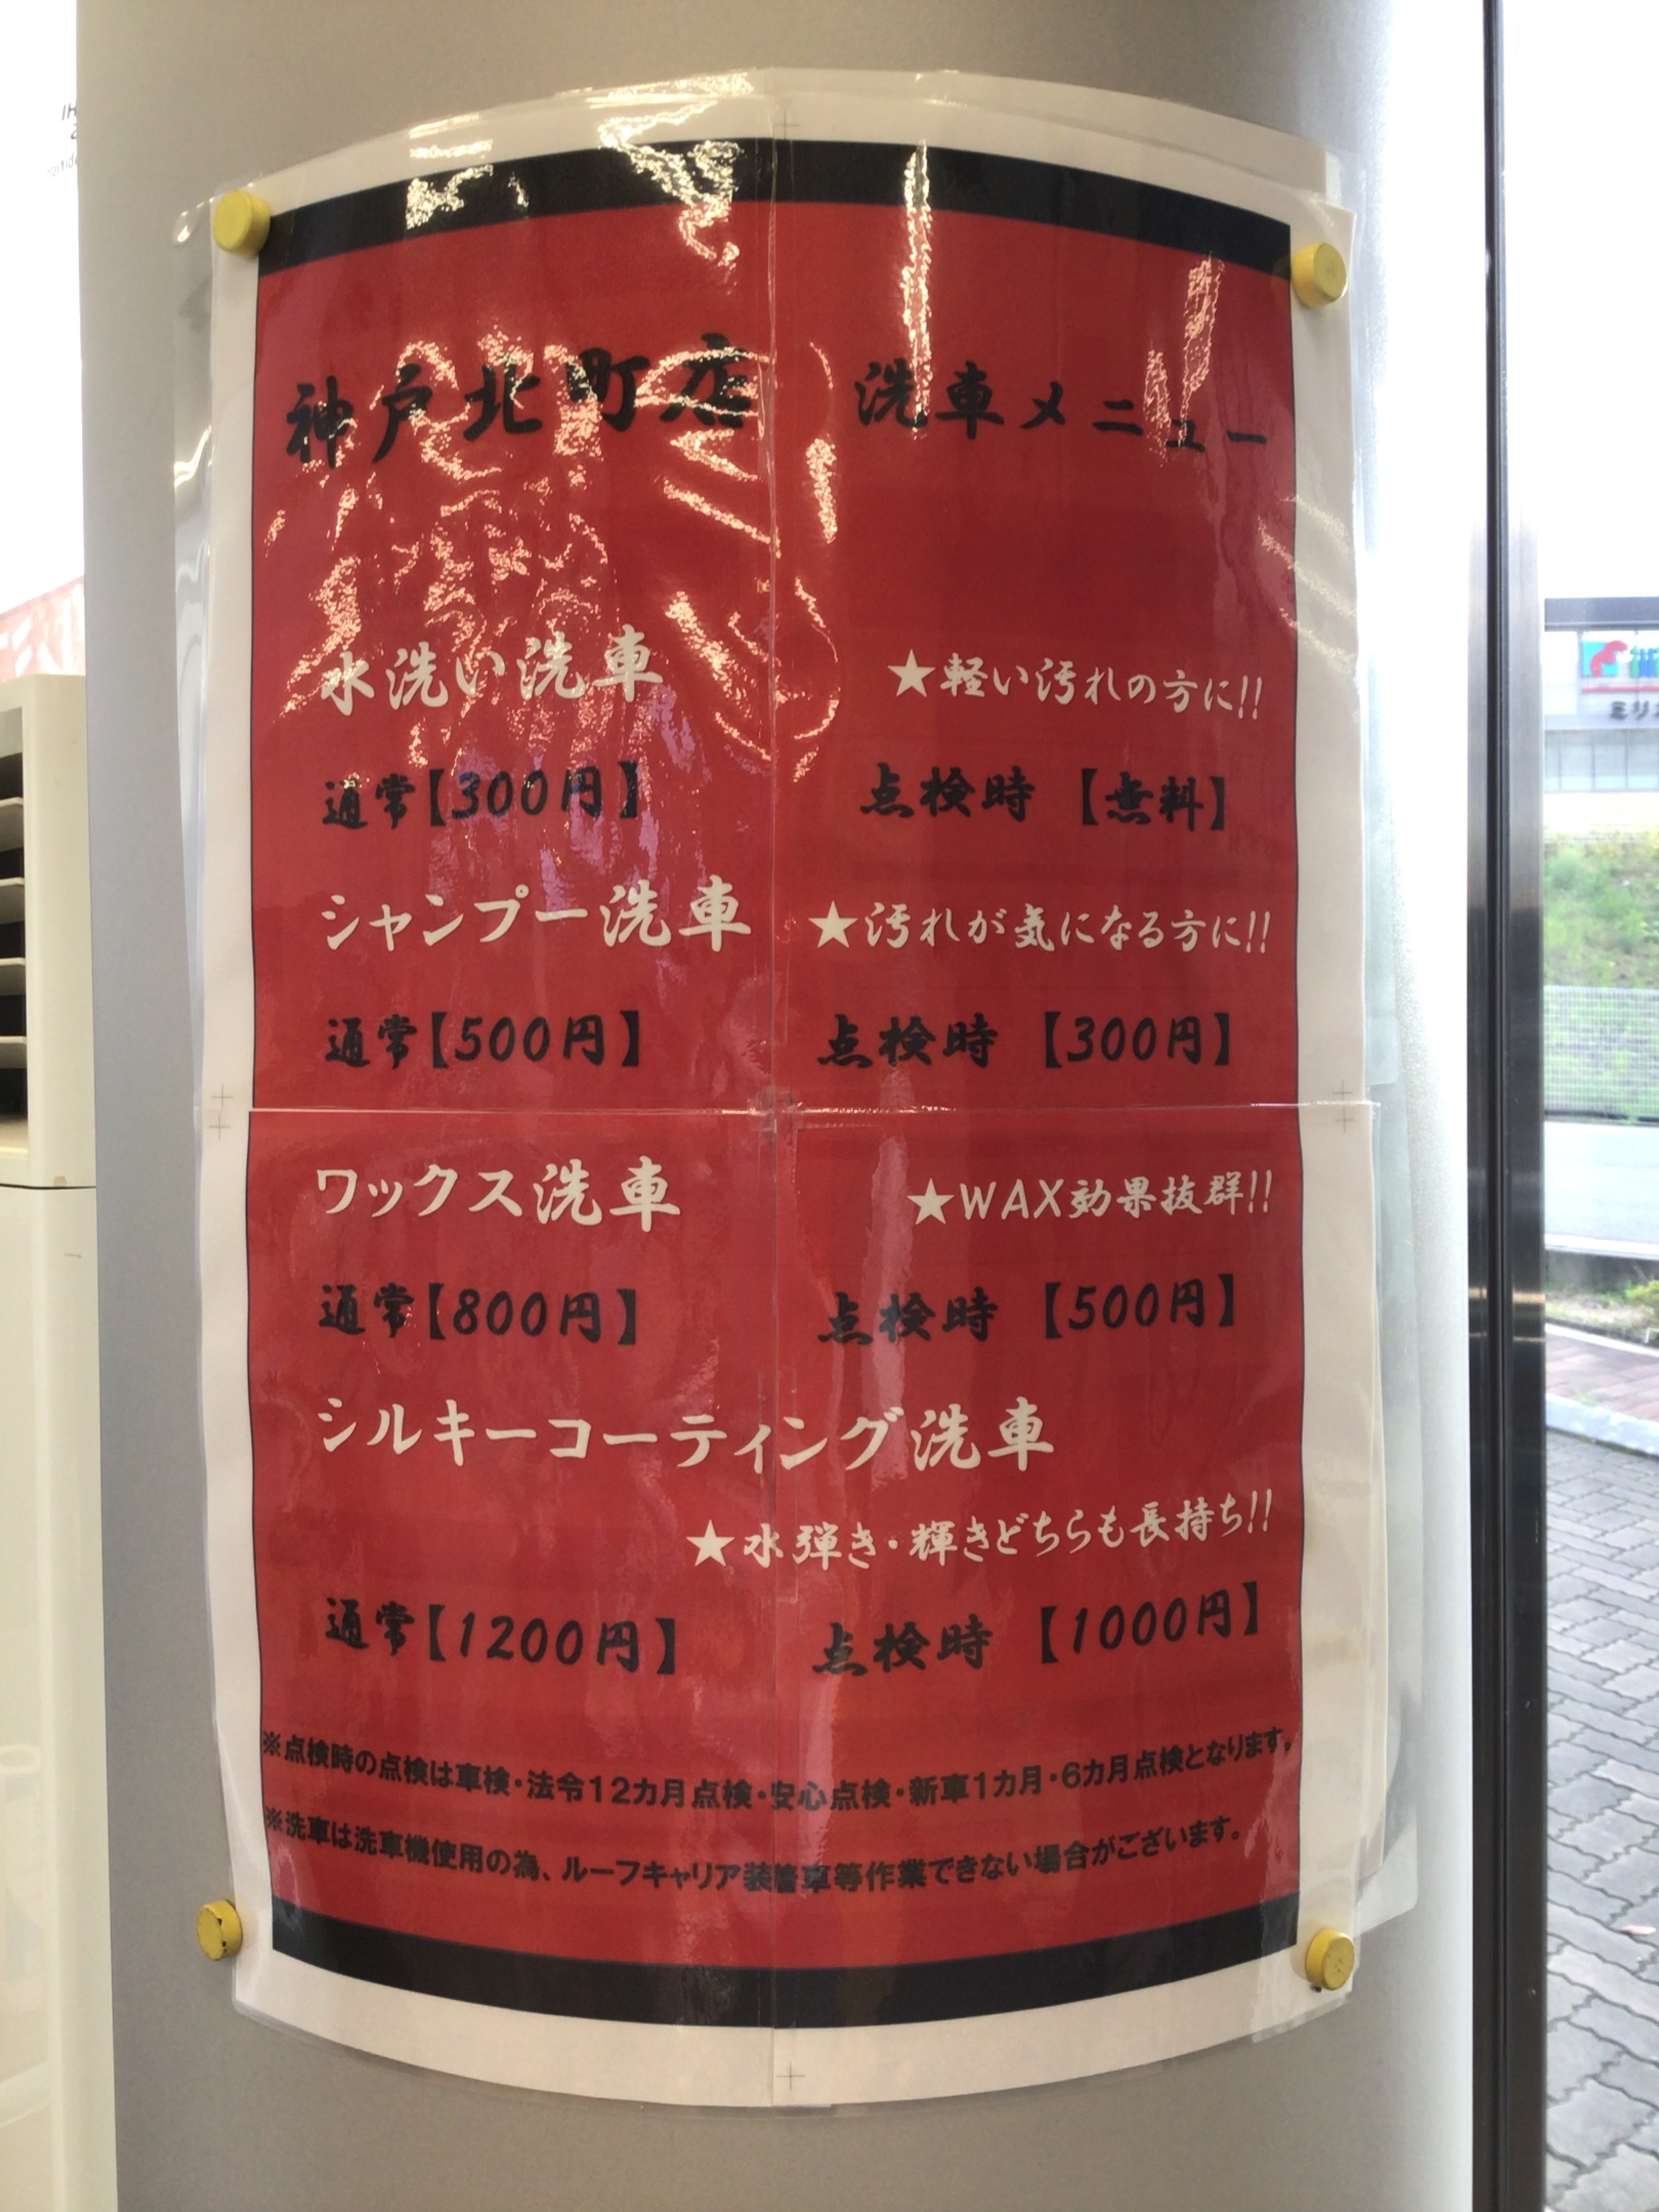 神戸北町店 洗車メニュー
水洗い洗車 ★軽い汚れの方に!!
通常【300円】 点検時【無料】
シャンプー洗車 ★汚れが気になる方に!!
通常【500円】 点検時【300円】
ワックス洗車 ★WAX効果抜群!!
通常【800円】 点検時【500円】
シルキーコーティング洗車
★水弾き・輝きどちらも長持ち!!
通常【1200円】 点検時【1000円】
※点検時の点検は車検・法令12カ月点検・安心点検・新車1カ月・6カ月点検となります。
※洗車は洗車機使用の為、ルーフキャリア装着車等作業できない場合がございます。